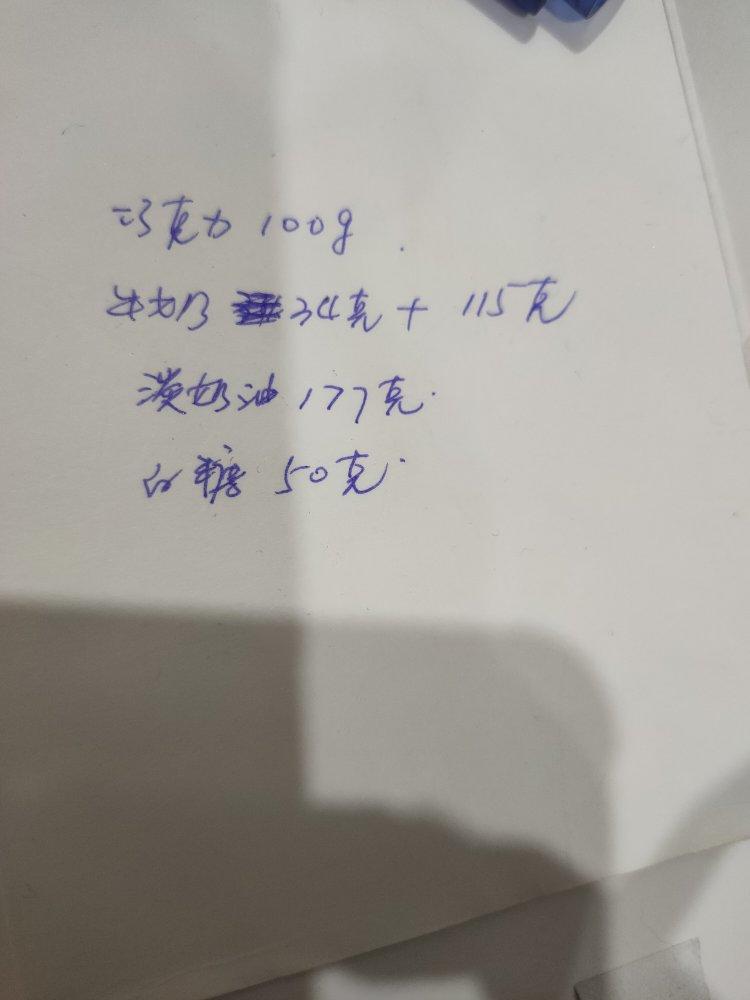 巧克力 100g
牛奶 34克 + 115克
淡奶油 177克
白糖 50克